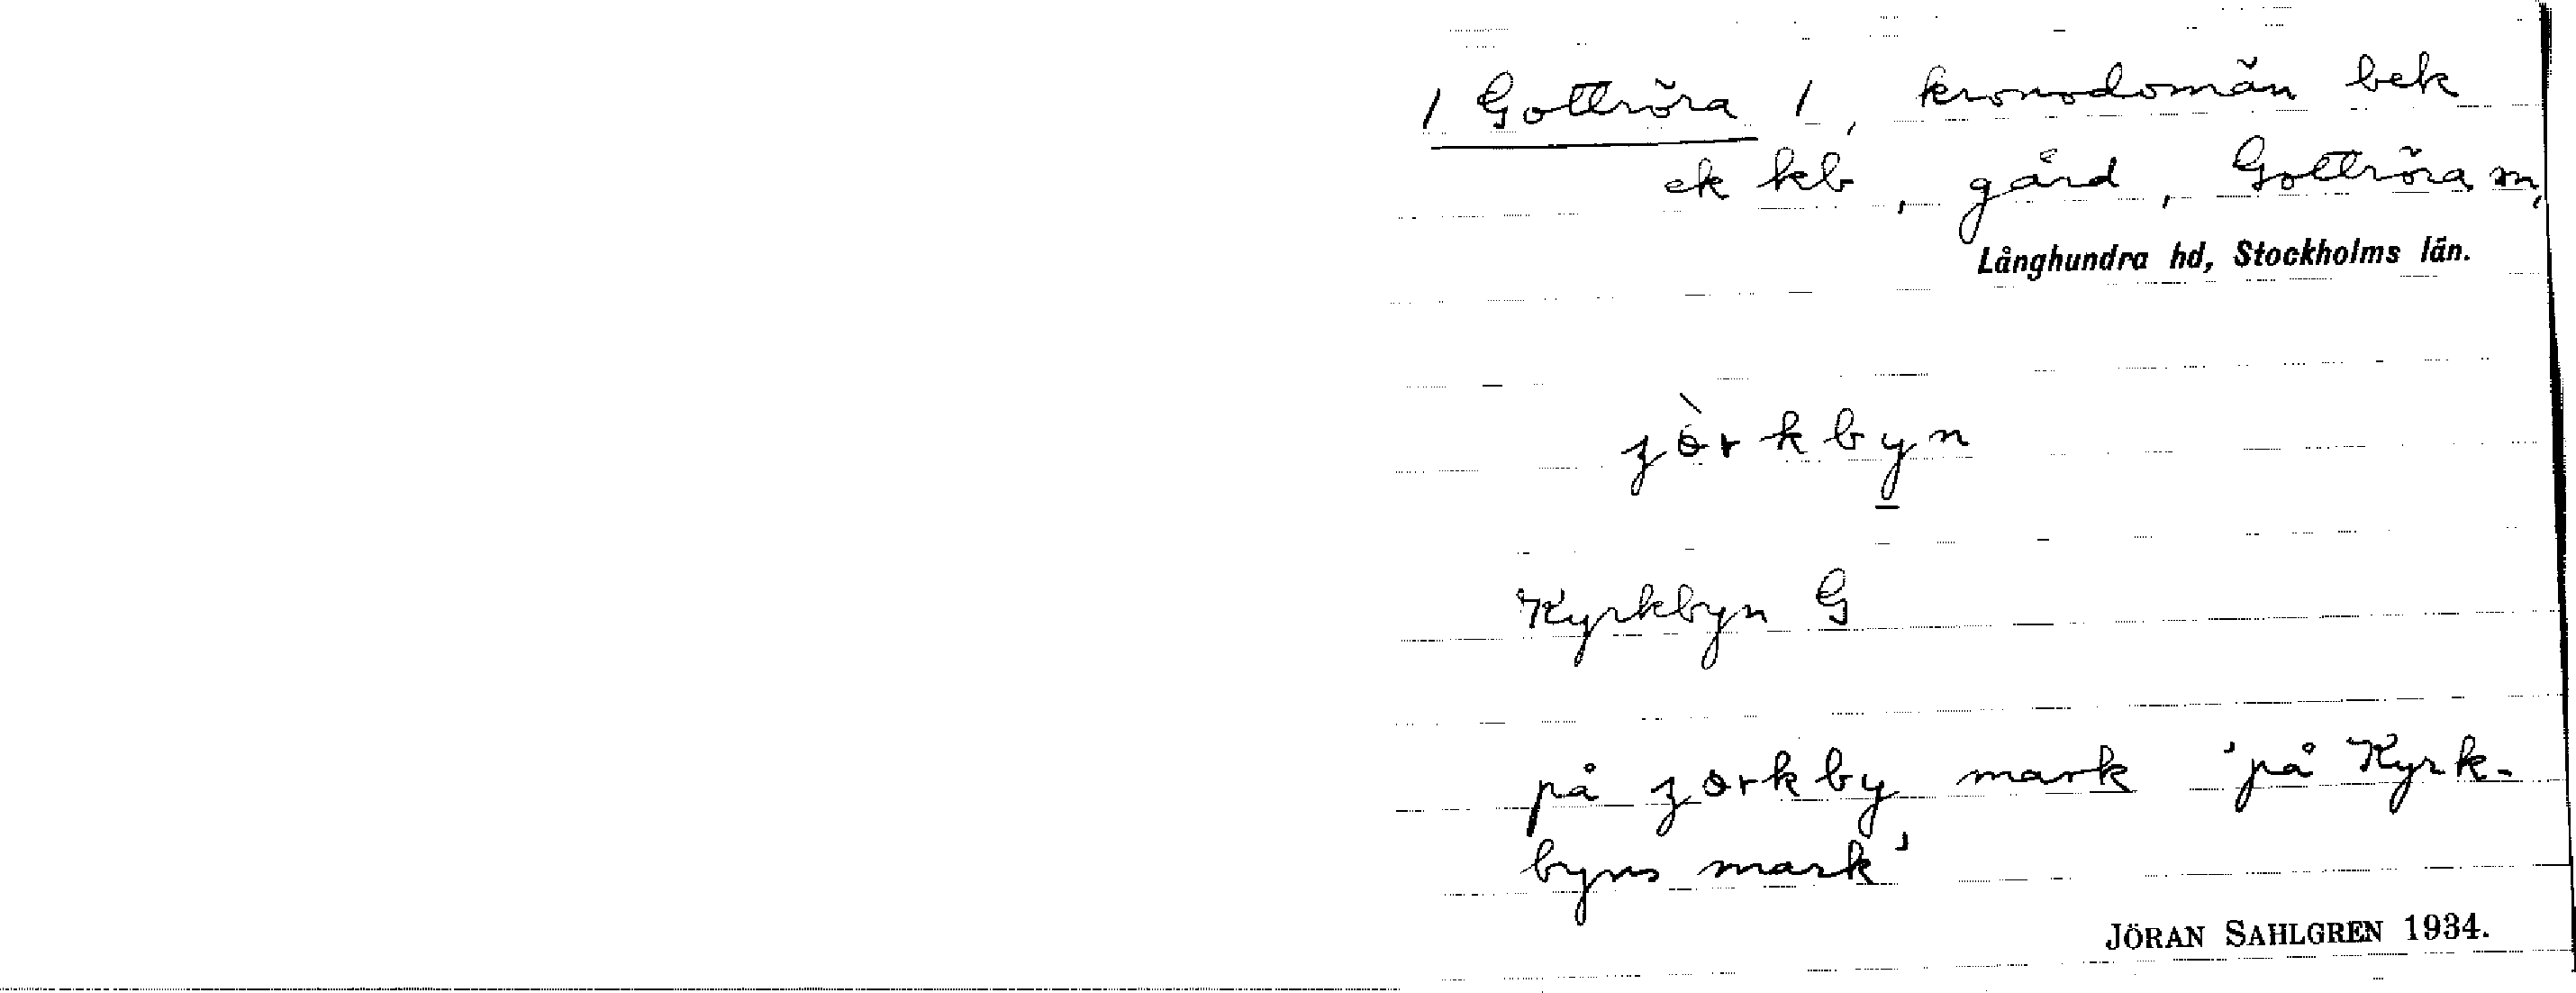 / Gottröra /, kronodomän bek
ek kb, gård, Gottröra sn,
Långhundra hd, Stockholms län.
ʒɵ̀rkbyn
Kyrkbyn G
på ʒɵrkby mark 'på Kyrk-
byns mark'
JÖRAN SAHLGREN 1934.